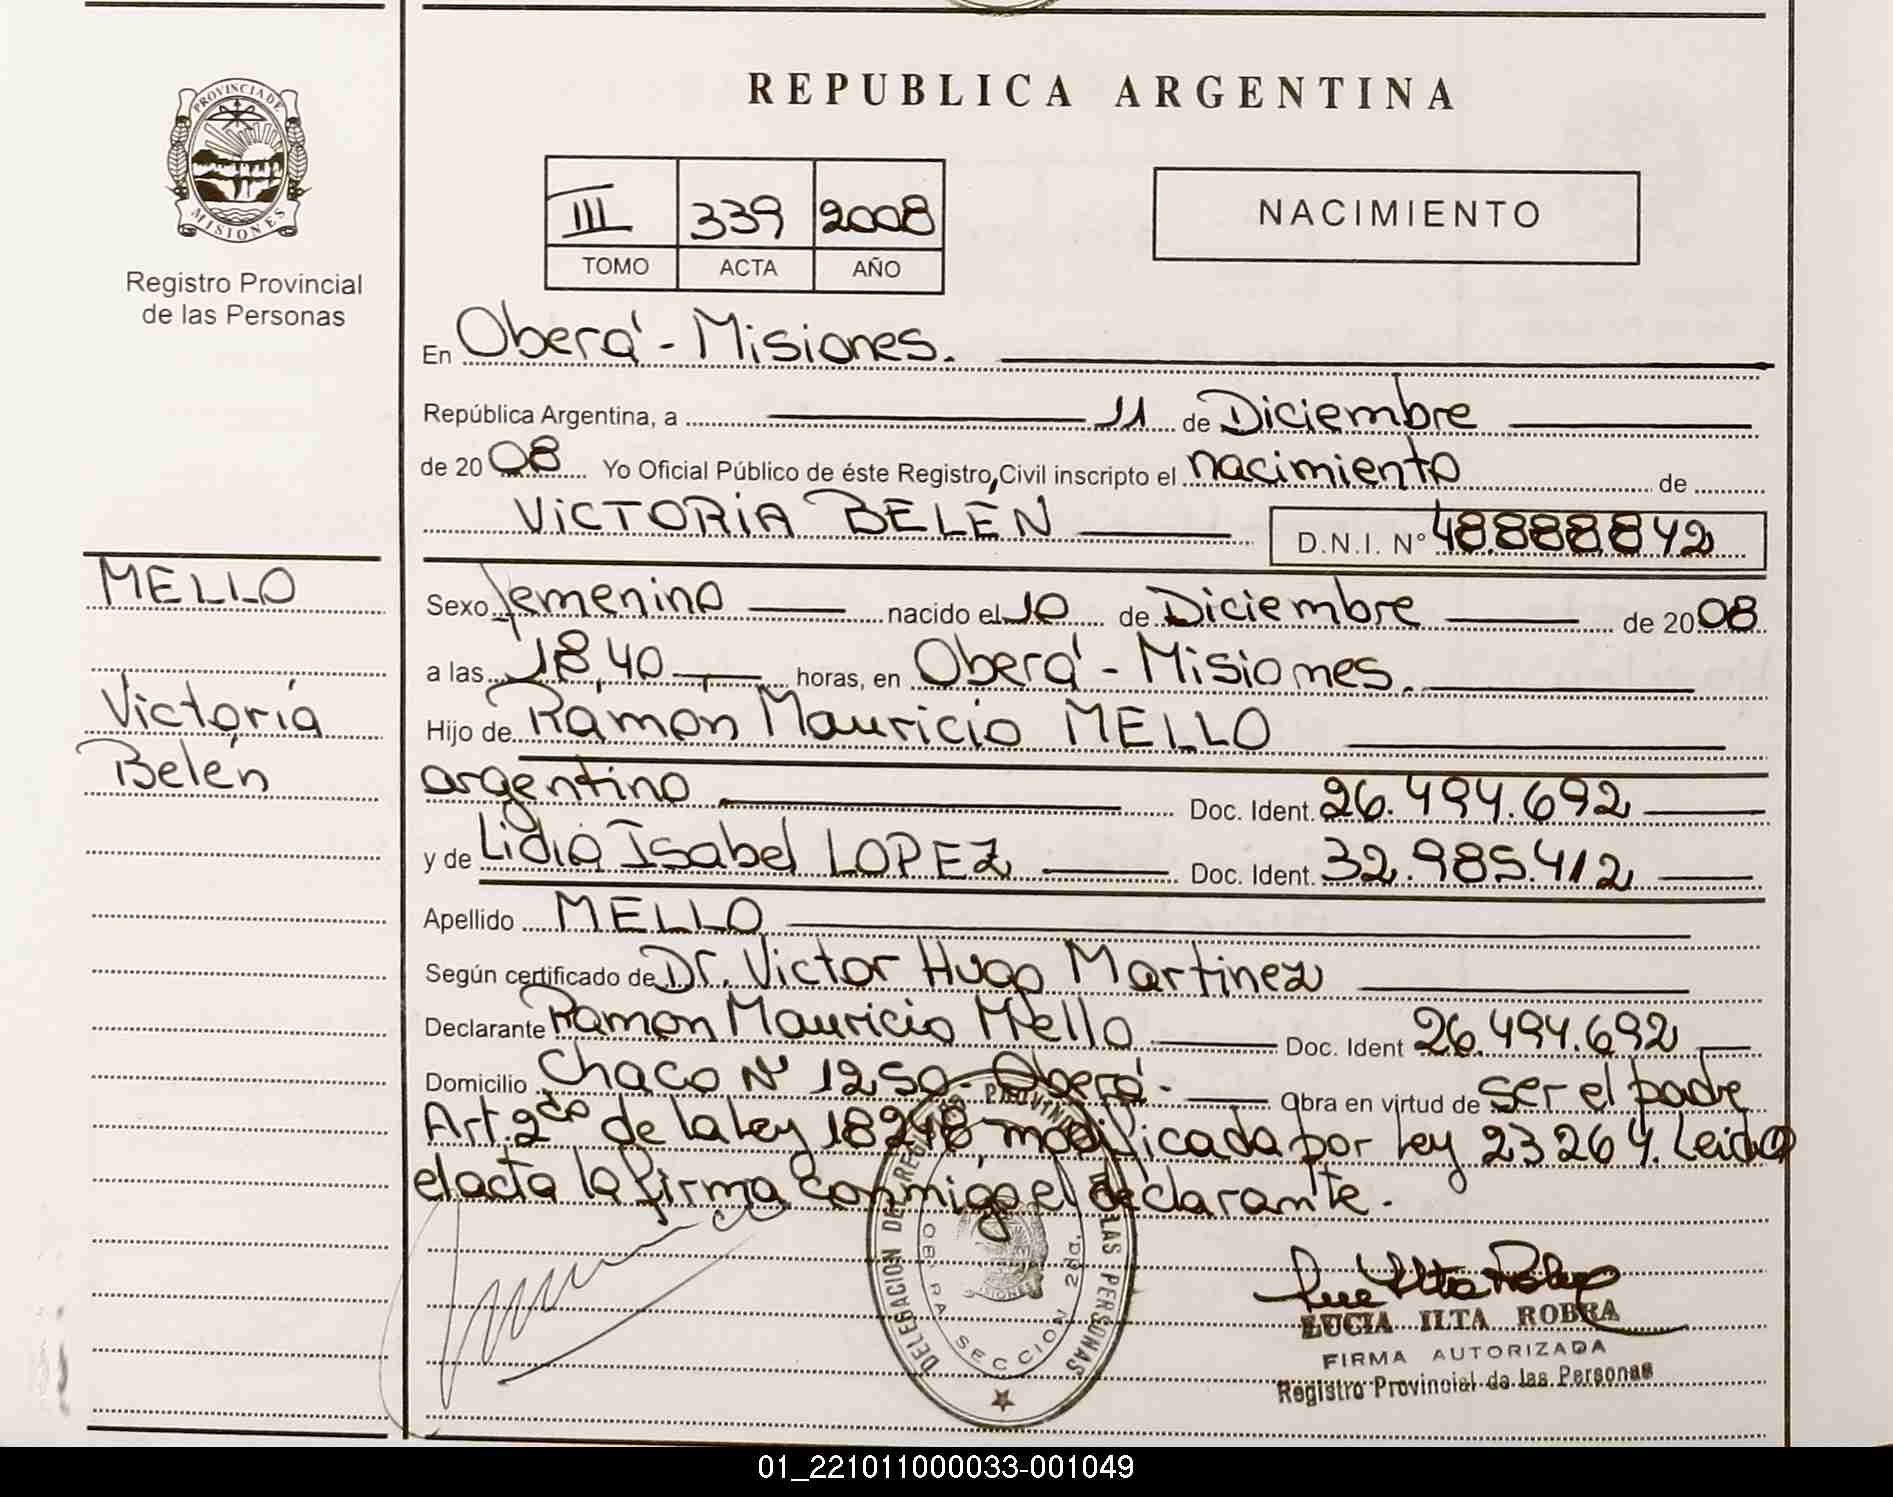 PROVINCIA DE
MISIONES
Registro Provincial
de las Personas
REPUBLICA ARGENTINA
III 339 2008
TOMO ACTA AÑO
NACIMIENTO
En Oberá - Misiones.
República Argentina, a 11 de Diciembre
de 2008 Yo Oficial Público de éste Registro Civil inscripto el nacimiento de
VICTORIA BELÉN D.N.I. N° 48.888.842
MELLO
Victoria
Belén
Sexo femenino nacido el 10 de Diciembre de 2008
a las 18,40 horas, en Oberá - Misiones.
Hijo de Ramón Mauricio MELLO
argentino Doc. Ident. 26.494.692
y de Lidia Isabel LOPEZ Doc. Ident. 32.985.412
Apellido MELLO
Según certificado de Dr. Victor Hugo Martinez
Declarante Ramon Mauricio Mello Doc. Ident 26.494.692
Domicilio Chaco Nº 1250 - Oberá - Obra en virtud de ser el padre
Art. 2do de la Ley 18248, modificada por Ley 23264. Leida
el acta la firma conmigo el declarante.
DELEGACION DEL REGISTRO PROVINCIAL DE LAS PERSONAS
OBERA SECCION 2da.
LUCIA ILTA ROBRA
FIRMA AUTORIZADA
Registro Provincial de las Personas
01_221011000033-001049